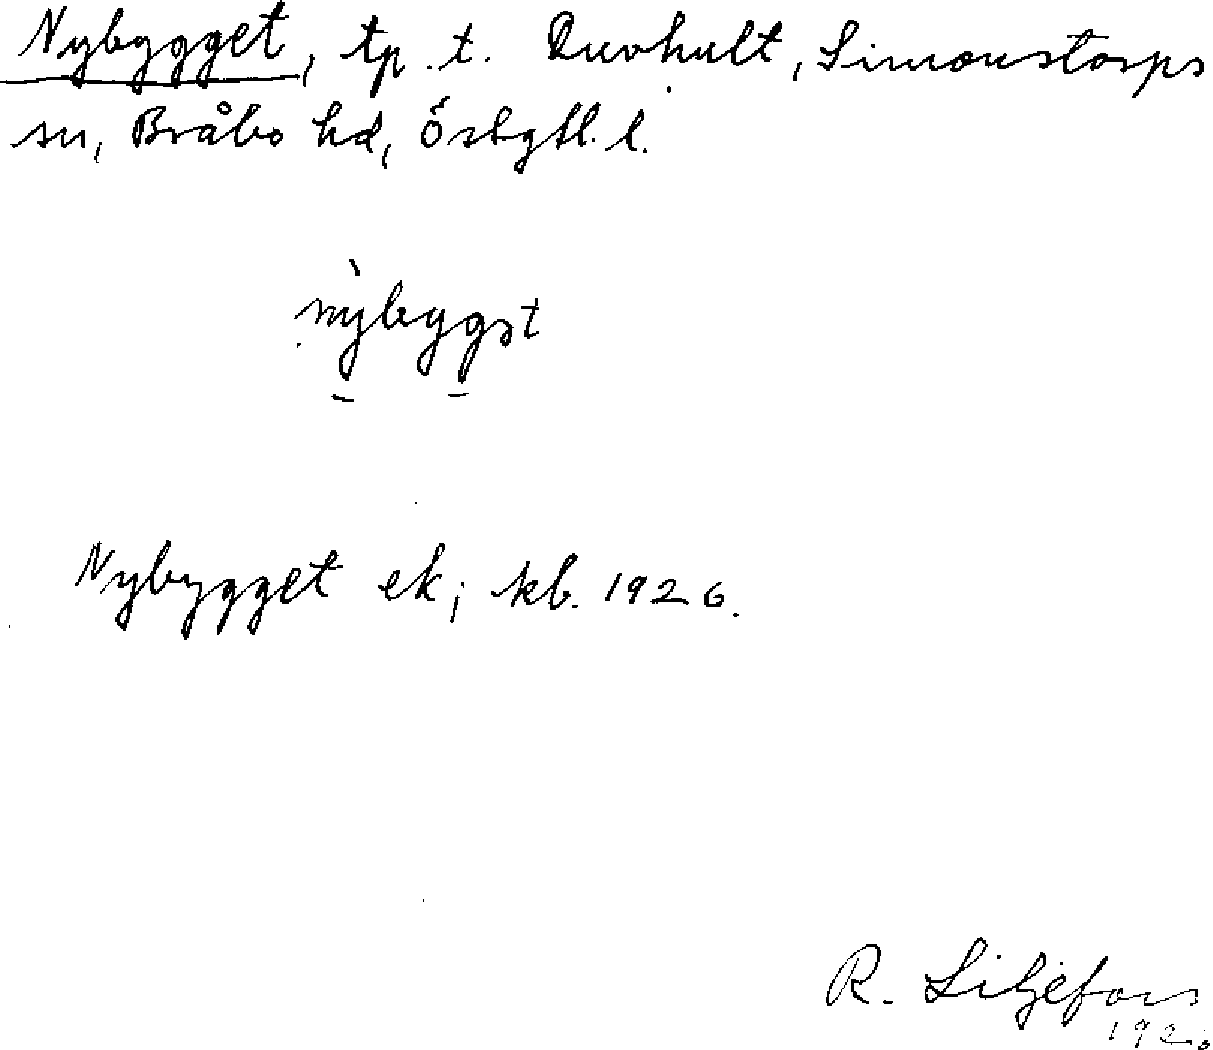 Nybygget, tp. t. Duvhult, Simonstorps
sn, Bråbo hd, Östgtl. l.
nỳbyggət
Nybygget ek; kb. 1926.
R. Liljefors
1926